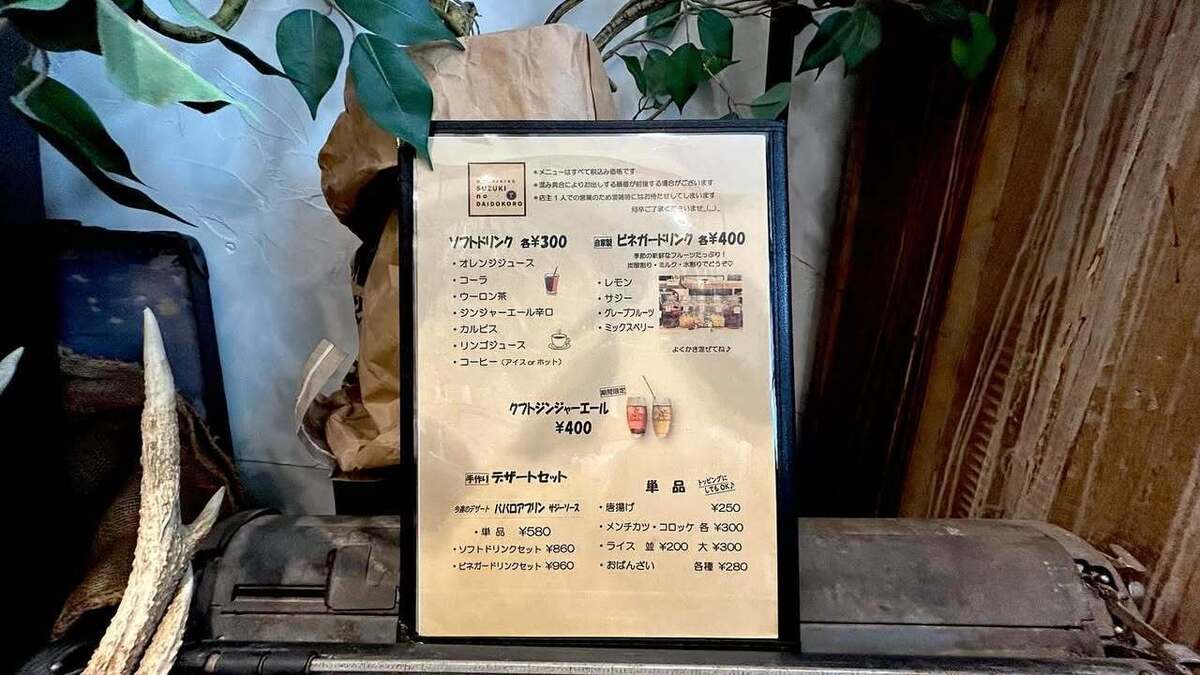 SUZUKI
no
DAIDOKORO
＊メニューはすべて税込み価格です
＊混み具合によりお出しする順番が前後する場合がございます
＊店主１人での営業のため混雑時にはお待たせしてしまいます
何卒ご了承くださいませ_(._.)_
ソフトドリンク 各¥300
・オレンジジュース
・コーラ
・ウーロン茶
・ジンジャーエール辛口
・カルピス
・リンゴジュース
・コーヒー（アイス or ホット）
自家製 ビネガードリンク 各¥400
季節の新鮮なフルーツたっぷり！
炭酸割り・ミルク・水割りでどうぞ♡
・レモン
・サジー
・グレープフルーツ
・ミックスベリー
よくかき混ぜてね♪
期間限定
クラフトジンジャーエール
¥400
手作り デザートセット
今週のデザート ババロアプリン サジーソース
・単品 ¥580
・ソフトドリンクセット ¥860
・ビネガードリンクセット ¥960
単品 トッピングにしてもOK♪
・唐揚げ ¥250
・メンチカツ・コロッケ 各 ¥300
・ライス 並 ¥200 大 ¥300
・おばんざい 各種 ¥280